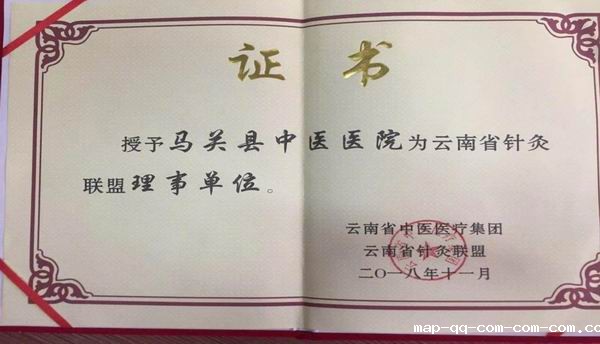 证书
授予马关县中医医院为云南省针灸
联盟理事单位。
云南省中医医疗集团
云南省针灸联盟
二〇一八年十一月
map-qq-com-com-com.cn